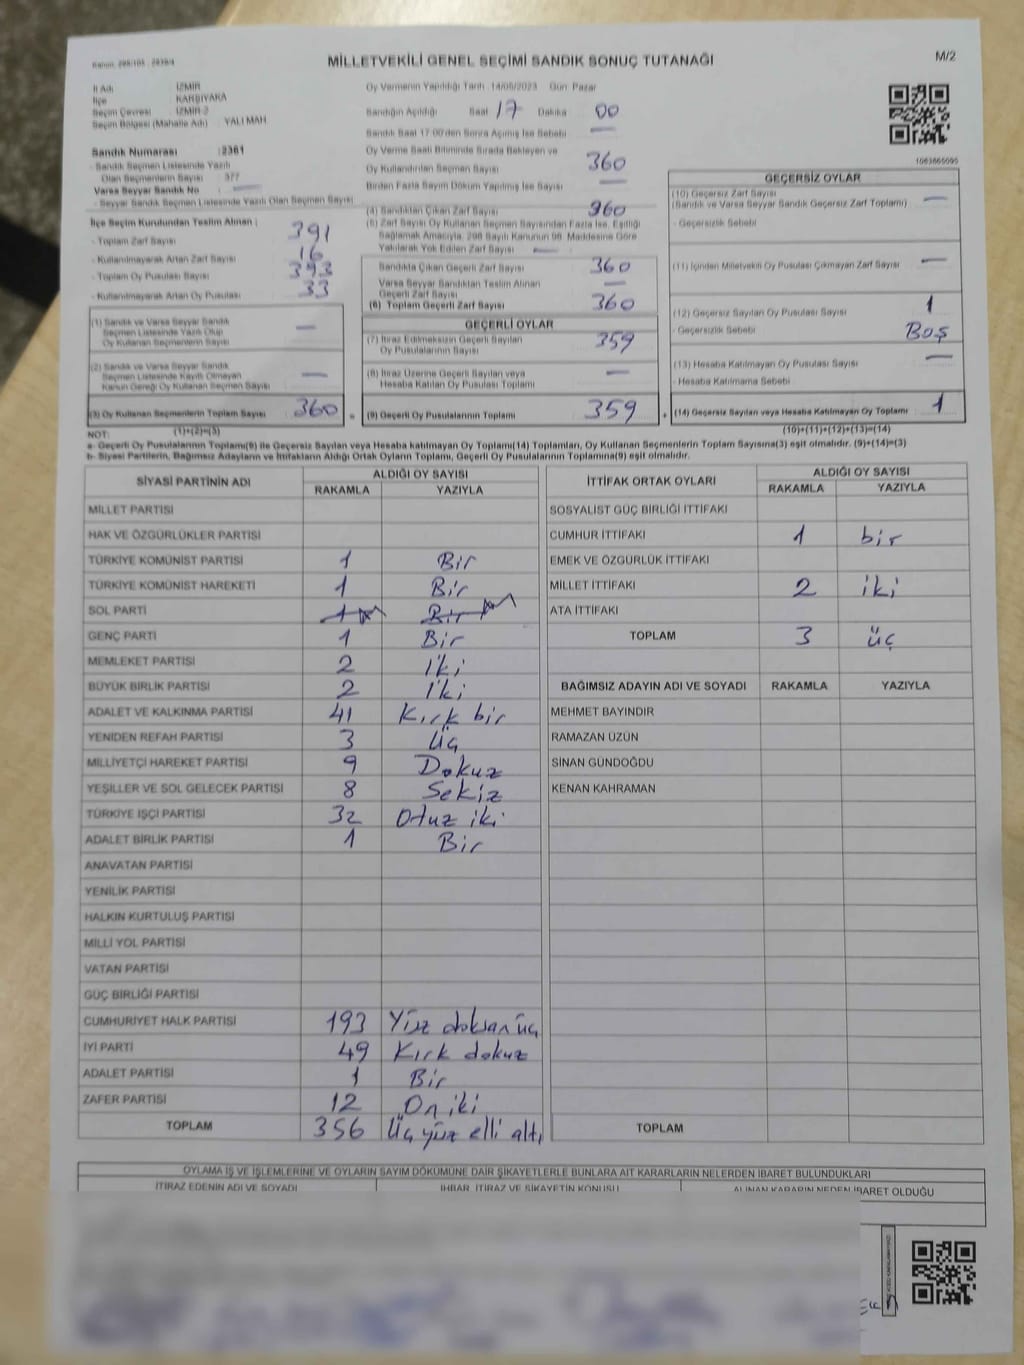 MİLLETVEKİLİ GENEL SEÇİMİ SANDIK SONUÇ TUTANAĞI
M/2
İl Adı : İZMİR
İlçe : KARŞIYAKA
Seçim Çevresi : İZMİR-2
Seçim Bölgesi (Mahalle Adı) : YALI MAH
Sandık Numarası : 2361
- Sandık Seçmen Listesinde Yazılı
Olan Seçmenlerin Sayısı : 377
Varsa Seyyar Sandık No :
- Seyyar Sandık Seçmen Listesinde Yazılı Olan Seçmen Sayısı
İlçe Seçim Kurulundan Teslim Alınan :
- Toplam Zarf Sayısı 391
- Kullanılmayarak Artan Zarf Sayısı 16
- Toplam Oy Pusulası Sayısı 393
- Kullanılmayarak Artan Oy Pusulası 33
(1) Sandık ve Varsa Seyyar Sandık
Seçmen Listesinde Yazılı Olup
Oy Kullanan Seçmenlerin Sayısı —
(2) Sandık ve Varsa Seyyar Sandık
Seçmen Listesinde Kayıtlı Olmayan
Kanun Gereği Oy Kullanan Seçmen Sayısı —
(3) Oy Kullanan Seçmenlerin Toplam Sayısı 360 =
(1)+(2)=(3)
Oy Vermenin Yapıldığı Tarih : 14/05/2023 Gün: Pazar
Sandığın Açıldığı Saat 17 Dakika 00
Sandık Saat 17:00'den Sonra Açılmış İse Sebebi —
Oy Verme Saati Bitiminde Sırada Bekleyen ve
Oy Kullandırılan Seçmen Sayısı 360
Birden Fazla Sayım Döküm Yapılmış İse Sayısı —
(4) Sandıktan Çıkan Zarf Sayısı 360
(5) Zarf Sayısı Oy Kullanan Seçmen Sayısından Fazla İse, Eşitliği
Sağlamak Amacıyla, 298 Sayılı Kanunun 98. Maddesine Göre
Yakılarak Yok Edilen Zarf Sayısı —
Sandıkta Çıkan Geçerli Zarf Sayısı 360
Varsa Seyyar Sandıktan Teslim Alınan
Geçerli Zarf Sayısı —
(6) Toplam Geçerli Zarf Sayısı 360
GEÇERLİ OYLAR
(7) İtiraz Edilmeksizin Geçerli Sayılan
Oy Pusulalarının Sayısı 359
(8) İtiraz Üzerine Geçerli Sayılan veya
Hesaba Katılan Oy Pusulası Toplamı —
(9) Geçerli Oy Pusulalarının Toplamı 359 +
1063865095
GEÇERSİZ OYLAR
(10) Geçersiz Zarf Sayısı
(Sandık ve Varsa Seyyar Sandık Geçersiz Zarf Toplamı) —
- Geçersizlik Sebebi
(11) İçinden Milletvekili Oy Pusulası Çıkmayan Zarf Sayısı —
(12) Geçersiz Sayılan Oy Pusulası Sayısı 1
- Geçersizlik Sebebi Boş
(13) Hesaba Katılmayan Oy Pusulası Sayısı —
- Hesaba Katılmama Sebebi
(14) Geçersiz Sayılan veya Hesaba Katılmayan Oy Toplamı 1
(10)+(11)+(12)+(13)=(14)
NOT:
a- Geçerli Oy Pusulalarının Toplamı(9) ile Geçersiz Sayılan veya Hesaba katılmayan Oy Toplamı(14) Toplamları, Oy Kullanan Seçmenlerin Toplam Sayısına(3) eşit olmalıdır. (9)+(14)=(3)
b- Siyasi Partilerin, Bağımsız Adayların ve İttifakların Aldığı Ortak Oyların Toplamı, Geçerli Oy Pusulalarının Toplamına(9) eşit olmalıdır.
SİYASİ PARTİNİN ADI
ALDIĞI OY SAYISI
RAKAMLA YAZIYLA
MİLLET PARTİSİ
HAK VE ÖZGÜRLÜKLER PARTİSİ
TÜRKİYE KOMÜNİST PARTİSİ 1 Bir
TÜRKİYE KOMÜNİST HAREKETİ 1 Bir
SOL PARTİ 1 Bir
GENÇ PARTİ 1 Bir
MEMLEKET PARTİSİ 2 İki
BÜYÜK BİRLİK PARTİSİ 2 İki
ADALET VE KALKINMA PARTİSİ 41 Kırk bir
YENİDEN REFAH PARTİSİ 3 Üç
MİLLİYETÇİ HAREKET PARTİSİ 9 Dokuz
YEŞİLLER VE SOL GELECEK PARTİSİ 8 Sekiz
TÜRKİYE İŞÇİ PARTİSİ 32 Otuz iki
ADALET BİRLİK PARTİSİ 1 Bir
ANAVATAN PARTİSİ
YENİLİK PARTİSİ
HALKIN KURTULUŞ PARTİSİ
MİLLİ YOL PARTİSİ
VATAN PARTİSİ
GÜÇ BİRLİĞİ PARTİSİ
CUMHURİYET HALK PARTİSİ 193 Yüz doksan üç
İYİ PARTİ 49 Kırk dokuz
ADALET PARTİSİ 1 Bir
ZAFER PARTİSİ 12 On iki
TOPLAM 356 Üç yüz elli altı
İTTİFAK ORTAK OYLARI
ALDIĞI OY SAYISI
RAKAMLA YAZIYLA
SOSYALİST GÜÇ BİRLİĞİ İTTİFAKI
CUMHUR İTTİFAKI 1 bir
EMEK VE ÖZGÜRLÜK İTTİFAKI
MİLLET İTTİFAKI 2 iki
ATA İTTİFAKI
TOPLAM 3 üç
BAĞIMSIZ ADAYIN ADI VE SOYADI RAKAMLA YAZIYLA
MEHMET BAYINDIR
RAMAZAN UZUN
SİNAN GÜNDOĞDU
KENAN KAHRAMAN
TOPLAM
OYLAMA İŞ VE İŞLEMLERİNE VE OYLARIN SAYIM DÖKÜMÜNE DAİR ŞİKAYETLERLE BUNLARA AİT KARARLARIN NELERDEN İBARET BULUNDUKLARI
İTİRAZ EDENİN ADI VE SOYADI İHBAR, İTİRAZ VE ŞİKAYETİN KONUSU ALINAN KARARIN NEDEN İBARET OLDUĞU